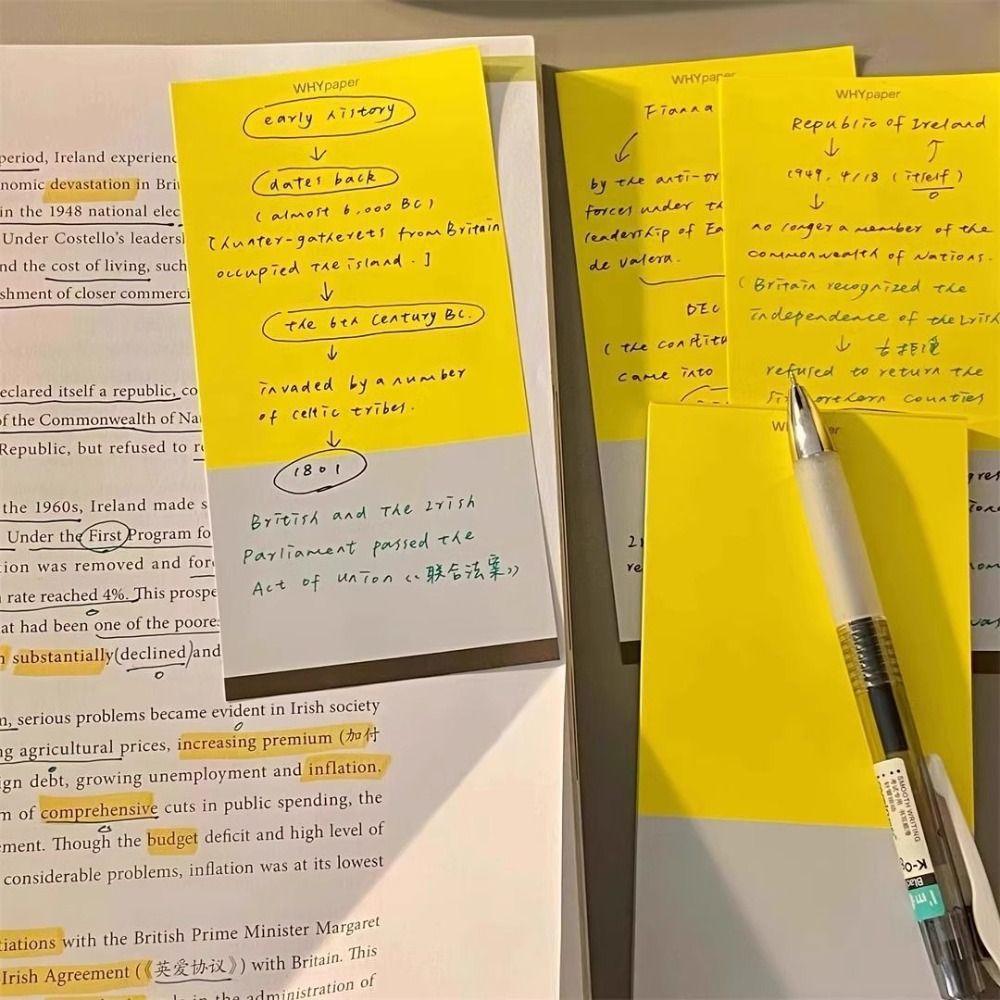 period, Ireland experienc
nomic devastation in Bri
in the 1948 national elec
Under Costello's leaders
nd the cost of living, such
shment of closer commerci
eclared itself a republic, co
of the Commonwealth of Na
Republic, but refused to re
the 1960s, Ireland made s
Under the First Program fo
tion was removed and for
rate reached 4%. This prospe
at had been one of the poore
substantially declined and
n, serious problems became evident in Irish society
ng agricultural prices, increasing premium (加付
ign debt, growing unemployment and inflation.
m of comprehensive cuts in public spending, the
ement. Though the budget deficit and high level of
considerable problems, inflation was at its lowest
tiations with the British Prime Minister Margaret
Irish Agreement (《英爱协议》) with Britain. This
in the administration of
WHYpaper
early history
dates back
(almost 6,000 BC)
[hunter-gatherers from Britain
occupied the island.]
the 6th Century BC.
invaded by a number
of celtic tribes.
1801
British and The Irish
Parliament passed the
Act of Union 《联合法案》
WHYpaper
Fianna
by the anti-tr
forces under th
leadership of Ea
de valera.
DEC
(the constitu
came into
WHYpaper
Republic of Ireland
1949, 4/18 (itself)
no longer a member of the
commonwealth of Nations.
(Britain recognized the
independence of the Irish
refused to return the
Six northern counties
WHYpaper
SMOOTH WRITING
K-O
Blac
I'm